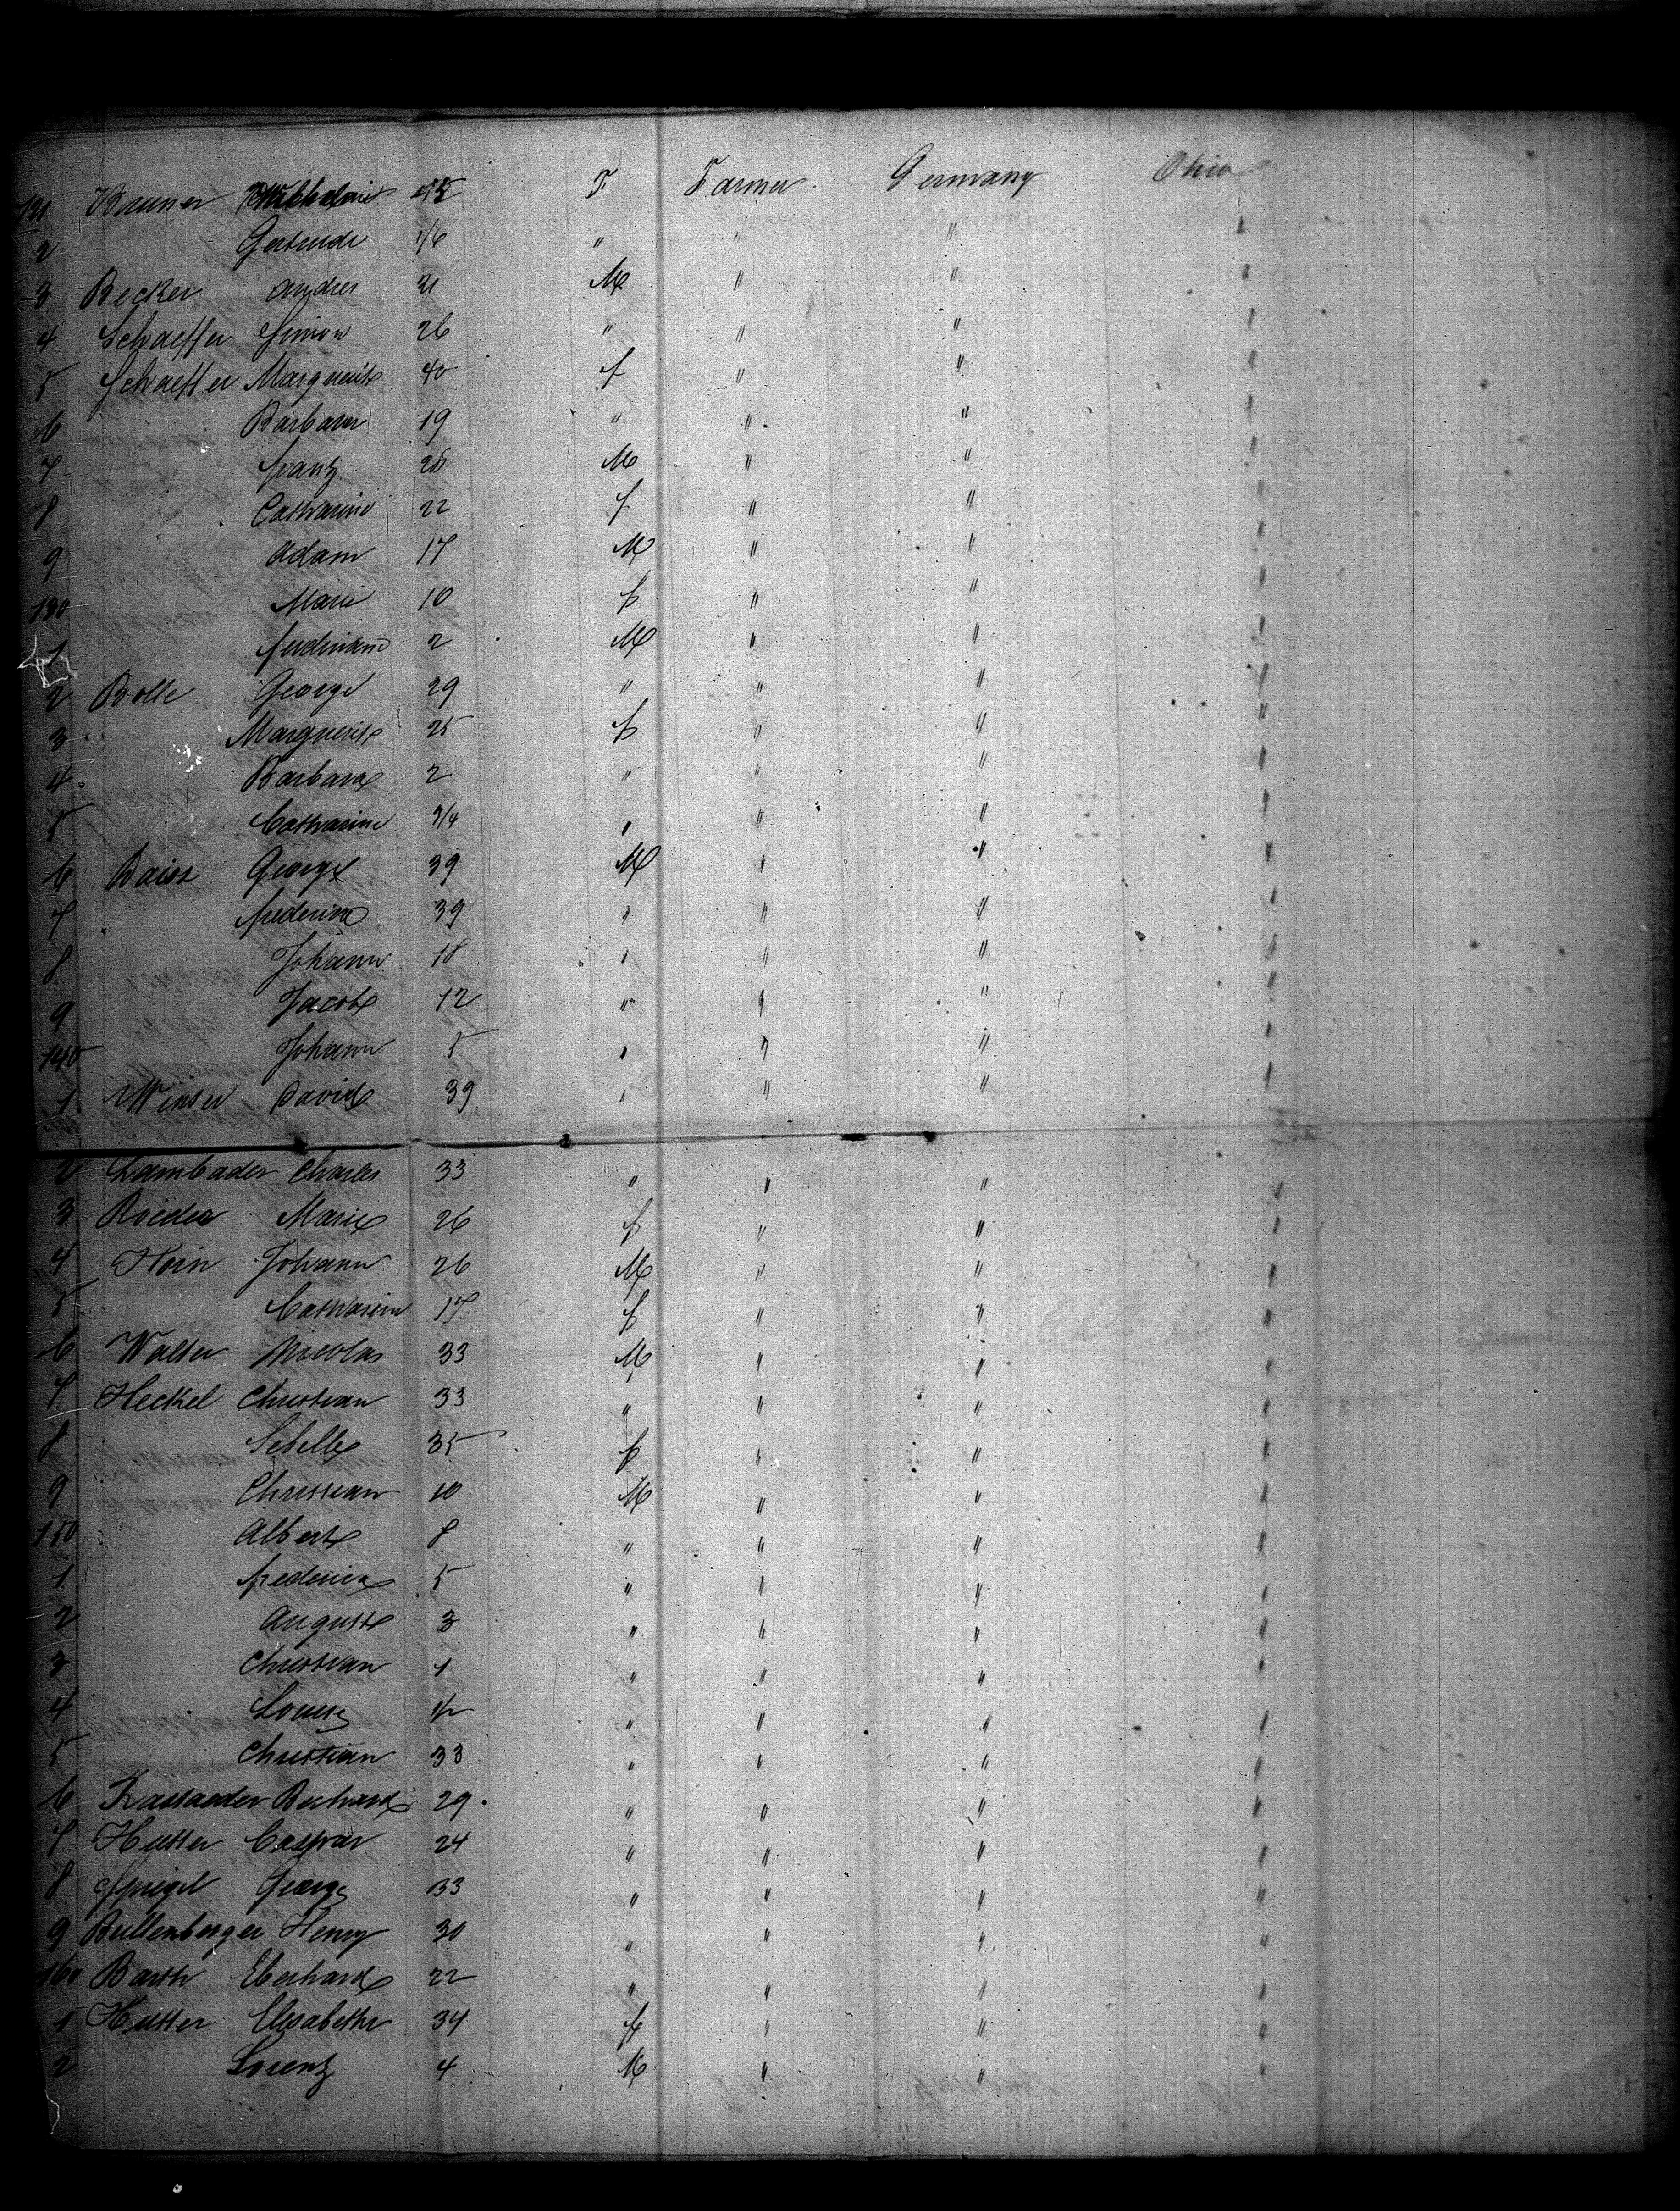 121 Brunner Wilhelmine 45 F Farmer Germany Ohio
2 Gertrude 1/6 " " " "
3 Becker Andres 21 M " " "
4 Schaeffer Simon 26 " " " "
5 Schaeffer Marguerite 40 f " " "
6 Barbara 19 " " " "
7 frantz 28 M " " "
8 Catharine 22 f " " "
9 Adam 17 M " " "
130 Marie 10 f " " "
1 ferdinand 2 M " " "
2 Bolle George 29 " " " "
3 Marguerite 25 f " " "
4 Barbara 2 " " " "
5 Catharine 3/4 " " " "
6 George 39 M " " "
7 frederick 39 " " " "
8 Johann 18 " " " "
9 Jacob 12 " " " "
140 Johann 5 " " " "
1 Winser David 39 " " " "
2 Lambader Charles 33 " " " "
3 Roeder Marie 26 f " " "
4 Horn Johann 26 M " " "
5 Catharine 17 f " " "
6 Walter Nicolas 33 M " " "
7 Heckel Christian 33 " " " "
8 Sebelle 35 f " " "
9 Christian 10 M " " "
150 Albert 8 " " " "
1 frederick 5 " " " "
2 August 3 " " " "
3 Christian 1 " " " "
4 Louise 1/2 " " " "
5 Christian 33 " " " "
6 29 " " " "
7 Hutter Caspar 24 " " " "
8 Spiegel George 33 " " " "
9 Bullenberger Henry 30 " " " "
160 Barth Eberhard 22 " " " "
1 Hutter Elisabeth 34 f " " "
2 Lorentz 4 M " " "